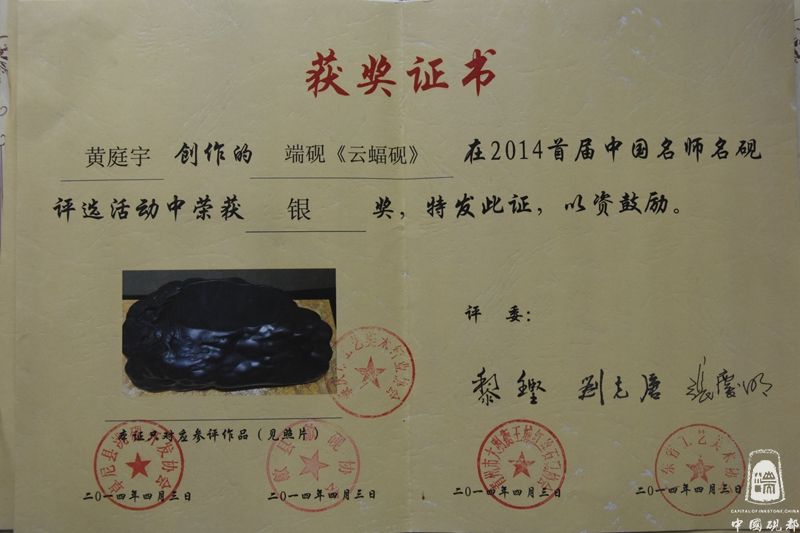 获奖证书
黄庭宇 创作的 端砚《云蝠砚》 在2014首届中国名师名砚
评选活动中荣获 银 奖，特发此证，以资鼓励。
评 委：
黎铿 刘克唐
本证只对应参评作品（见照片）
二〇一四年四月三日 二〇一四年四月三日 二〇一四年四月三日 二〇一四年四月三日
端
CAPITAL OF INKSTONE,CHINA
中國硯都